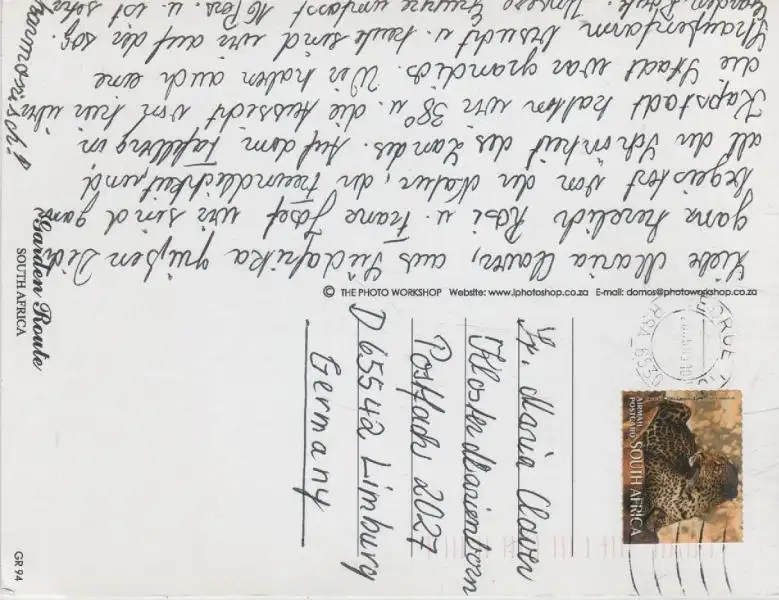 Liebe Maria Claver, aus Südafrika grüßen Dich
ganz herzlich Rosi u. Franz Josef wir sind ganz
begeistert von der Natur, der Freundlichkeit und
all der Schönheit des Landes. Auf dem Tafelberg in
Kapstadt hatten wir 38° u. die Aussicht von hier über
die Stadt war grandios. Wir haben auch eine
Straußenfarm besucht u. heute sind wir auf der sog.
Garden Rout. Unsere Gruppe umfasst 16 Pers. u. ist sehr
harmonisch!
Garden Route
SOUTH AFRICA
© THE PHOTO WORKSHOP Website: www.iphotoshop.co.za E-mail: domos@photoworkshop.co.za
Sr. Maria Claver
Kloster Marienborn
Postfach 2027
D 65542 Limburg
Germany
AIRMAIL
POSTCARD
SOUTH AFRICA
GR 94